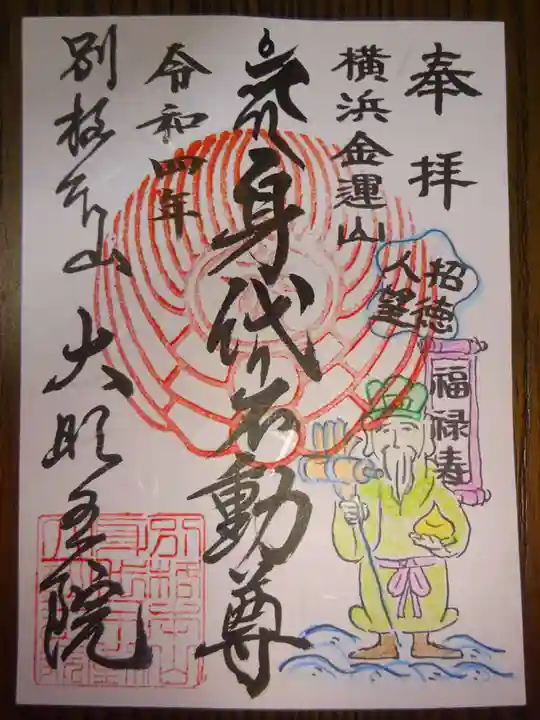 奉拝
横浜金運山
招徳
人望
福禄寿
荒身代り不動尊
令和四年
別格本山 大明王院